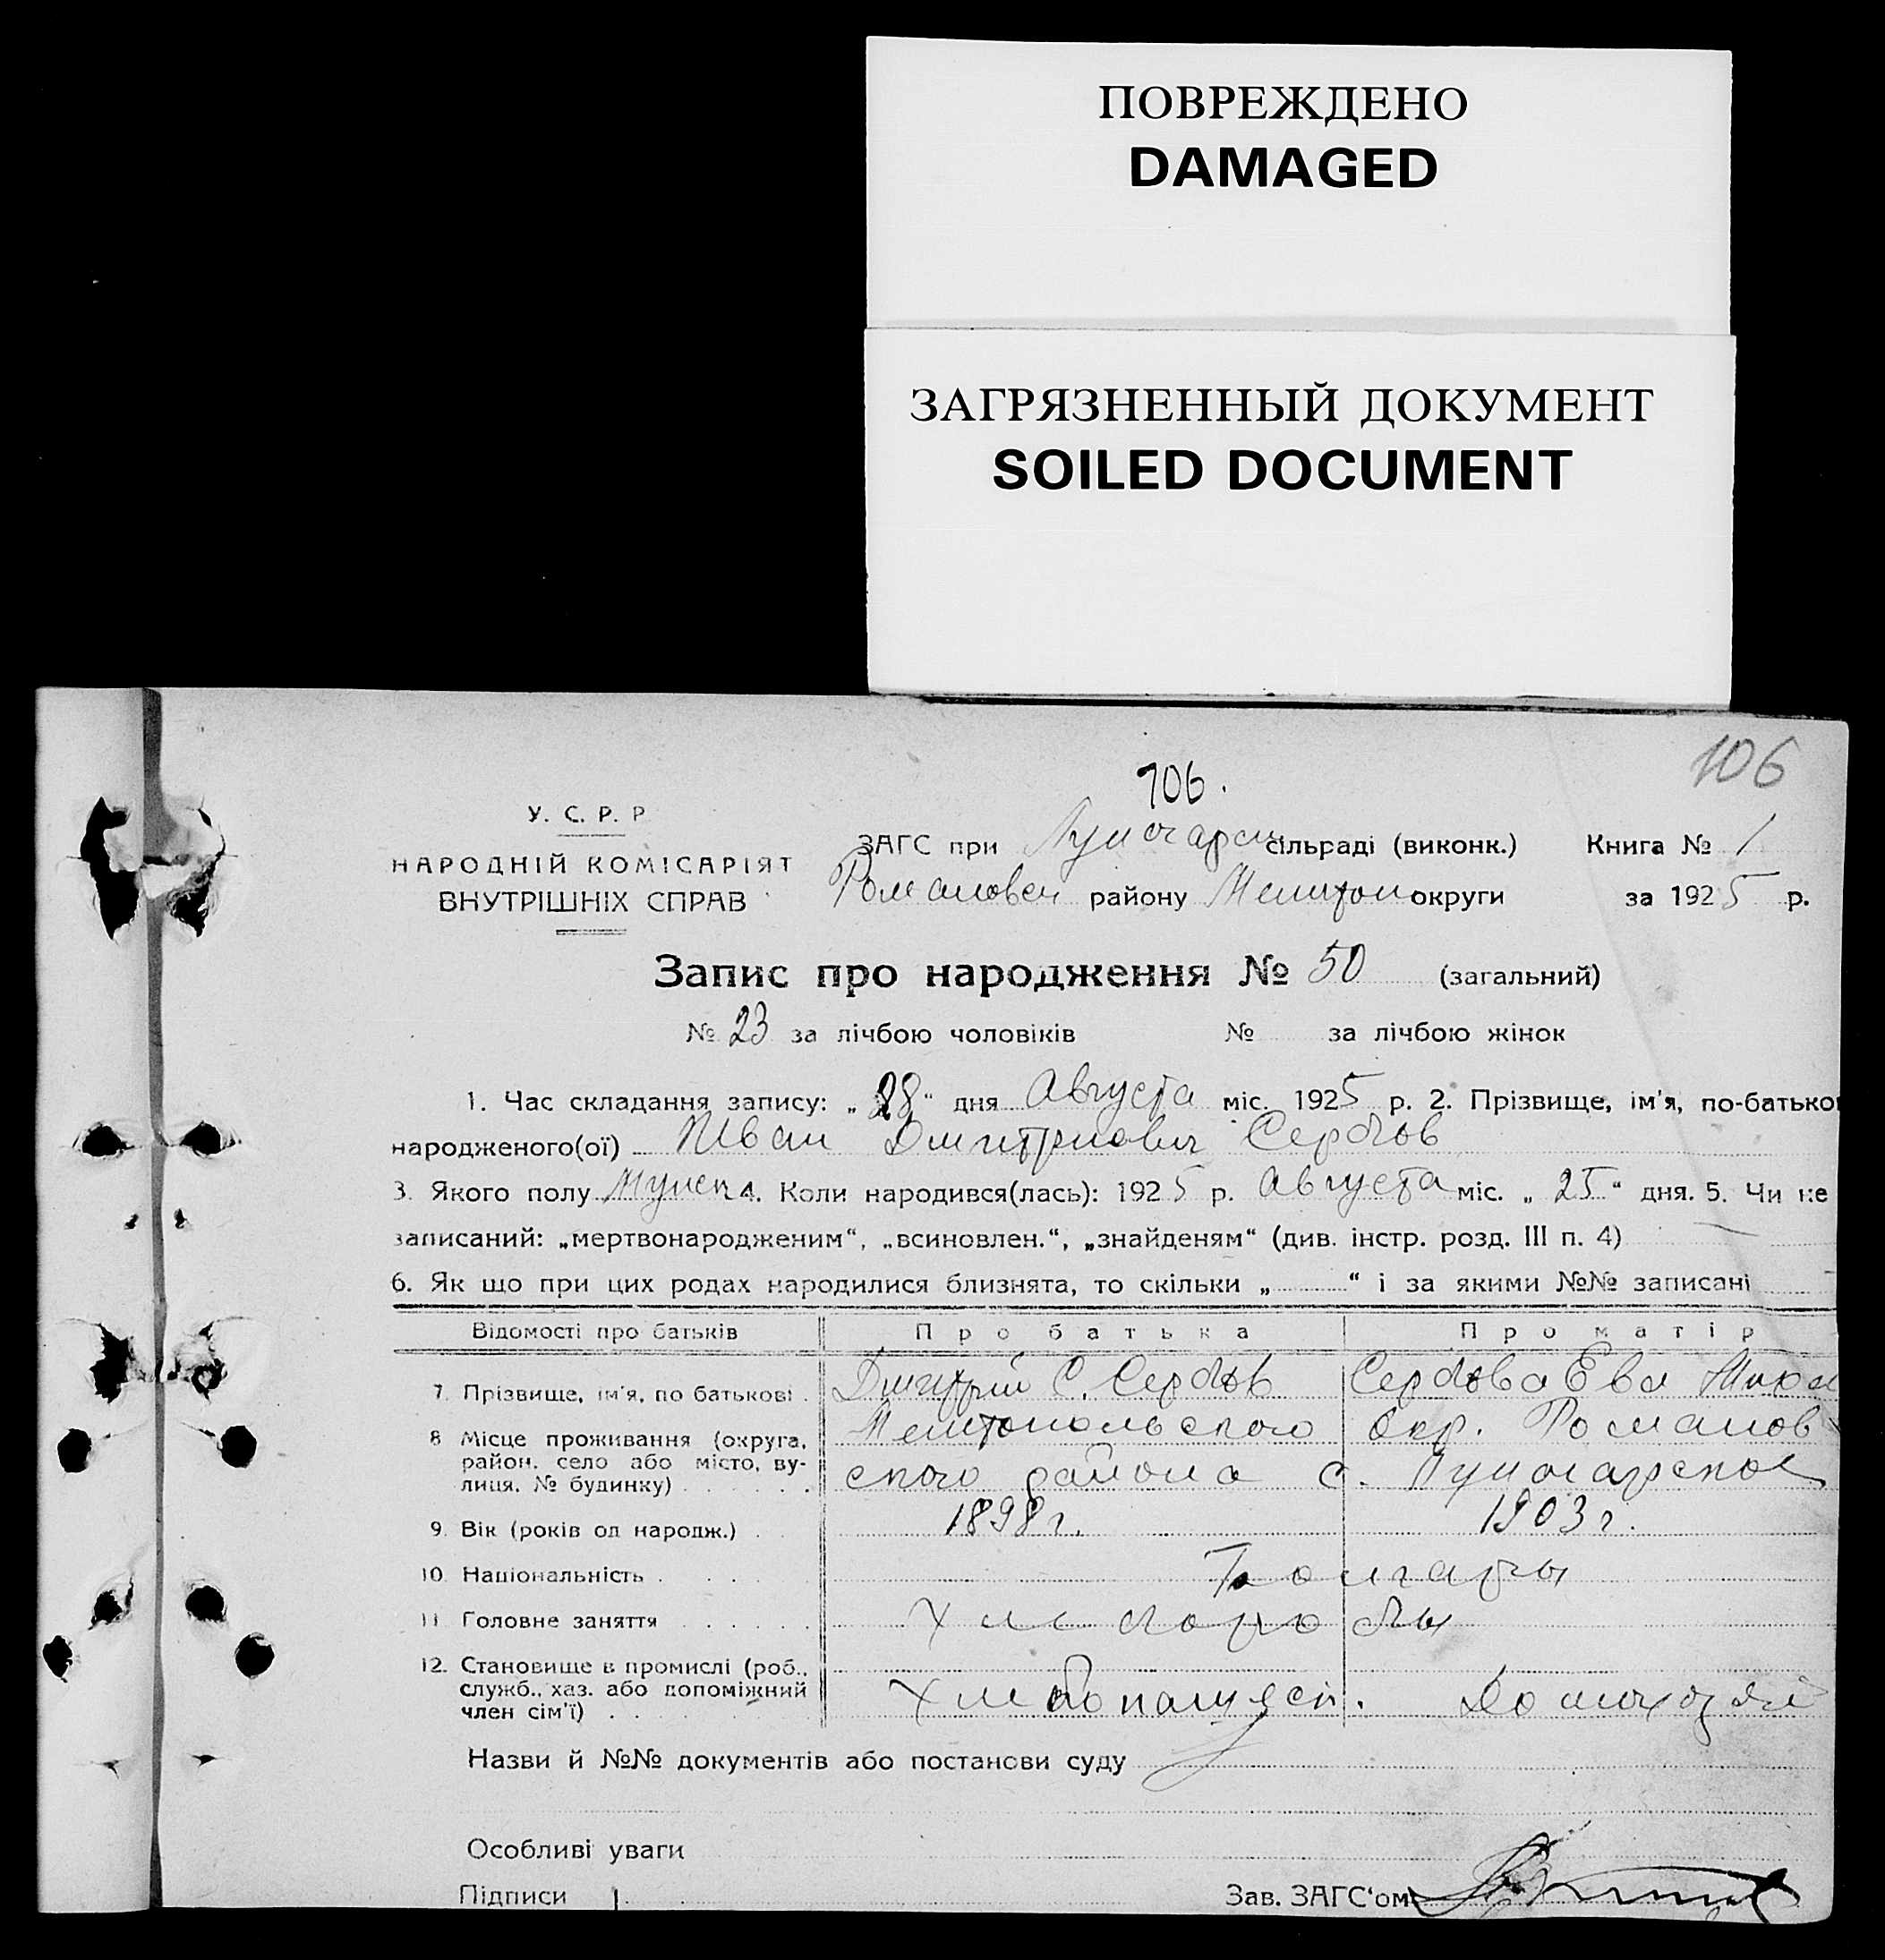 ПОВРЕЖДЕНО
DAMAGED
ЗАГРЯЗНЕННЫЙ ДОКУМЕНТ
SOILED DOCUMENT
106
106.
У. С. Р. Р
НАРОДНІЙ КОМІСАРІЯТ
ВНУТРІШНІХ СПРАВ
ЗАГС при Луначарск сільраді (виконк.) Книга № 1
Романовск району Мелитоп округи за 1925 р.
Запис про народження № 50 (загальний)
№ 23 за лічбою чоловіків № за лічбою жінок
1. Час складання запису: „28“ дня Августа міс. 1925 р. 2. Прізвище, ім'я, по-батько
народженого(ої) Иван Дмитриович Сербов
3. Якого полу Мужск 4. Коли народився(лась): 1925 р. Августа міс. „25“ дня. 5. Чи не
записаний: „мертвонародженим“, „всиновлен.“, „знайденям“ (див. інстр. розд. III п. 4)
6. Як що при цих родах народилися близнята, то скільки „ “ і за якими №№ записані
Відомості про батьків Про батька Про матір
7. Прізвище, ім'я, по батькові Дмитрий С. Сербов Сербова Ева
8 Місце проживання (округа, район, село або місто, вулиця, № будинку) Мелитопольского Окр. Романов
ского района с. Луначарское
9. Вік (років од народж.) 1898 г. 1903 г.
10 Національність Болгары
11 Головне заняття Хлеборобы
12. Становище в промислі (роб., служб., хаз. або допоміжний член сім'ї) Домохозяй
Назви й №№ документів або постанови суду
Особливі уваги
Підписи Зав. ЗАГС'ом